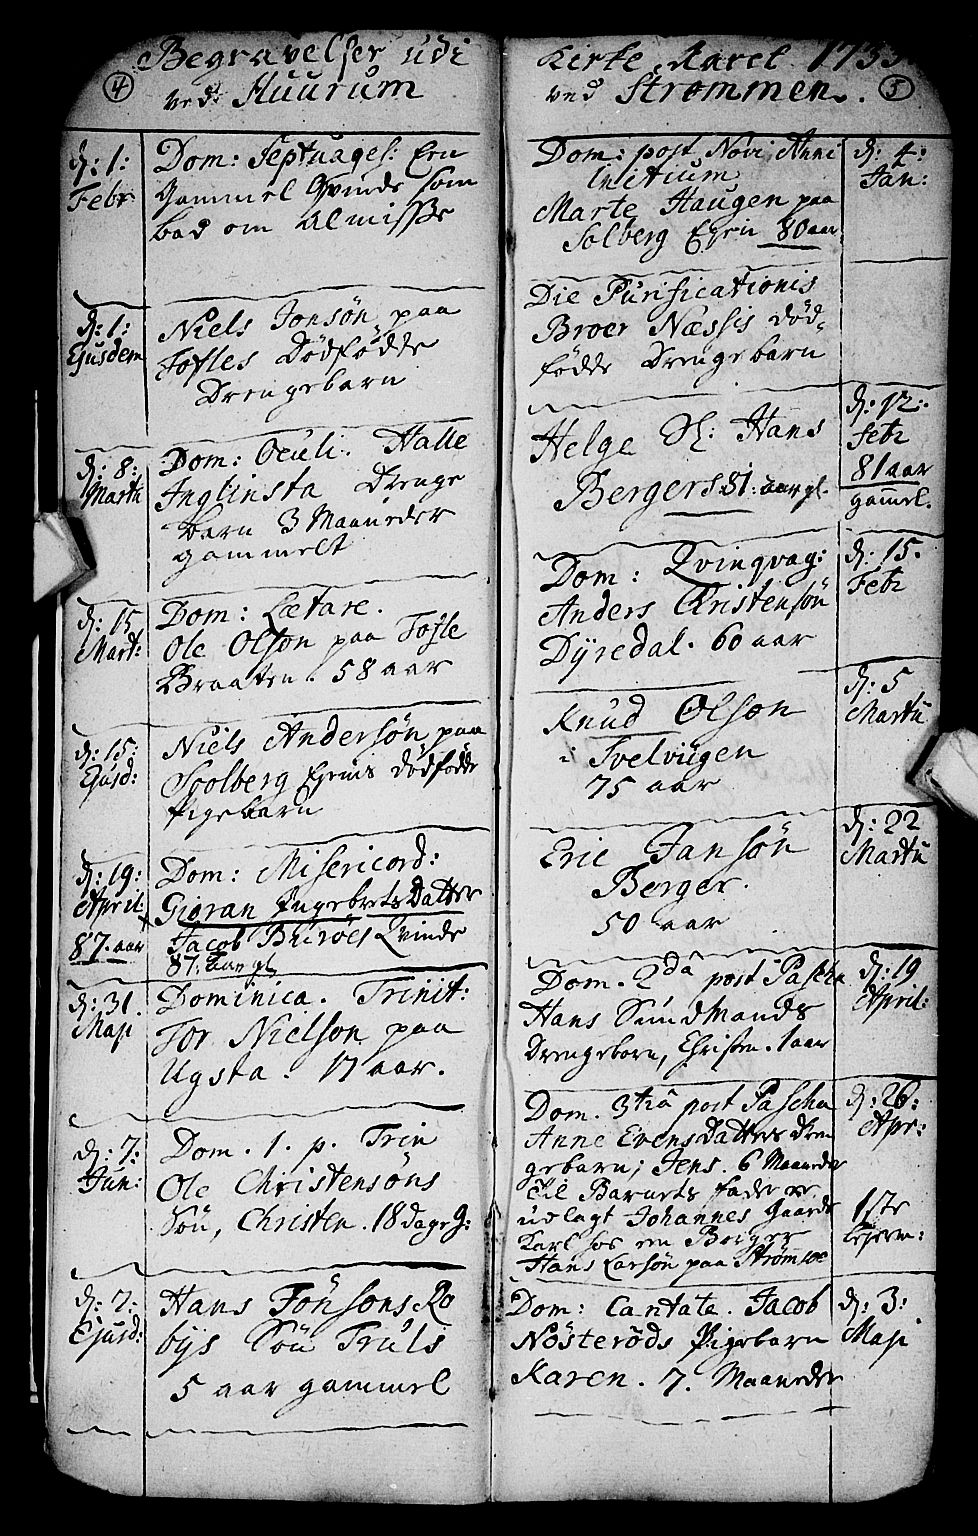 4
Begravelser udi
ved Huurum
d: 1:
Febr
Dom: Septuages: Een
Gammel Qvinde som
bad om Almisse
d: 1:
Ejusdem
Niels Jonsøn paa
Tofles Dødfødde
Drengebarn
d: 8:
Martii
Dom: Oculi. Halle
Inglinsta Drenge
barn 3 Maaneder
gammelt
d: 15
Mart:
Dom: Lætare.
Ole Olson paa Tofle
Braaten. 58 aar
d: 15:
Ejusd:
Niels Andersøn paa
Soolberg Eyens dødfødde
Pigebarn
d: 19:
April:
87. aar
Dom: Misericord:
Giøran Ingebretsdatter
Jacob Qvinde
87. aar gl
d: 31.
Maji
Dominica. Trinit:
Tor Nielson paa
Ugsta. 17 aar.
d: 7:
Jun:
Dom. 1. p. Trin
Ole Christensøns
Søn, Christen. 18 dage g:
d: 7:
Ejusd:
Hans Tønsons Ro
bys Søn Truls
5 aar gammel
Kirke Aaret 1733
ved Strømmen.
5
Dom: post Novi Anni
initium
Marte Haugen paa
Solberg Eyen 80 aar
d: 4:
Jan:
Die Purificationis
Broer Næsses død-
fødde Drengebarn
Helge Sl: Hans
Bergers 81: aar gl.
d: 12:
Febr
81 aar
gammel.
Dom: Qvinqvag:
Anders Christensøn
Dyredal. 60 aar
d: 15.
Febr
Knud Olson
i Svelviigen
75 aar
d: 5
Martii
Eric Jansøn
Berger.
50 aar
d: 22
Martii
Dom. 2da post Pascha
Hans Sundmands
Drengebarn, Christen. 1 aar
d: 19
April:
Dom. 3tia post Pascha
Anne Evensdatters Dren
gebarn; Jens. 6 Maaneder
til Barnets fader er
udlagt Johannes Gaards
Karl hos en Borger
Hans Larsøn paa Strømsoe
d: 26:
Apr:
1ste
Lejerm:
Dom: Cantate. Jacob
Nösterøds Pigebarn
Karen. 7. Maaneder
d: 3:
Maji